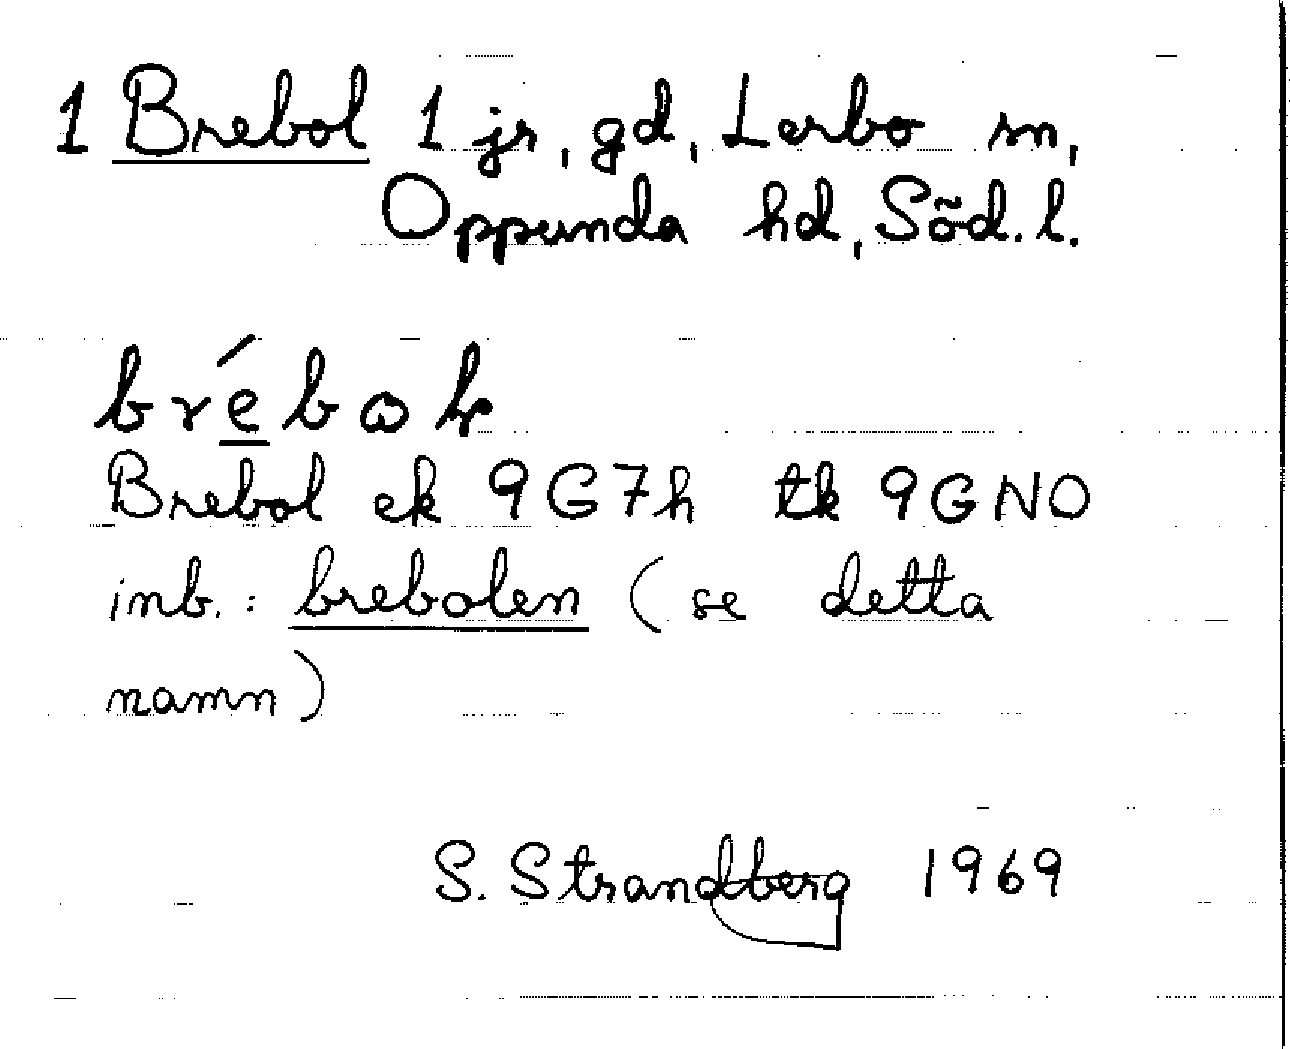 1 Brebol 1 jr, gd, Lerbo sn,
Oppunda hd, Söd. l.
brébωł
Brebol ek 9G7h tk 9GNO
inb.: brebolen (se detta
namn)
S. Strandberg 1969